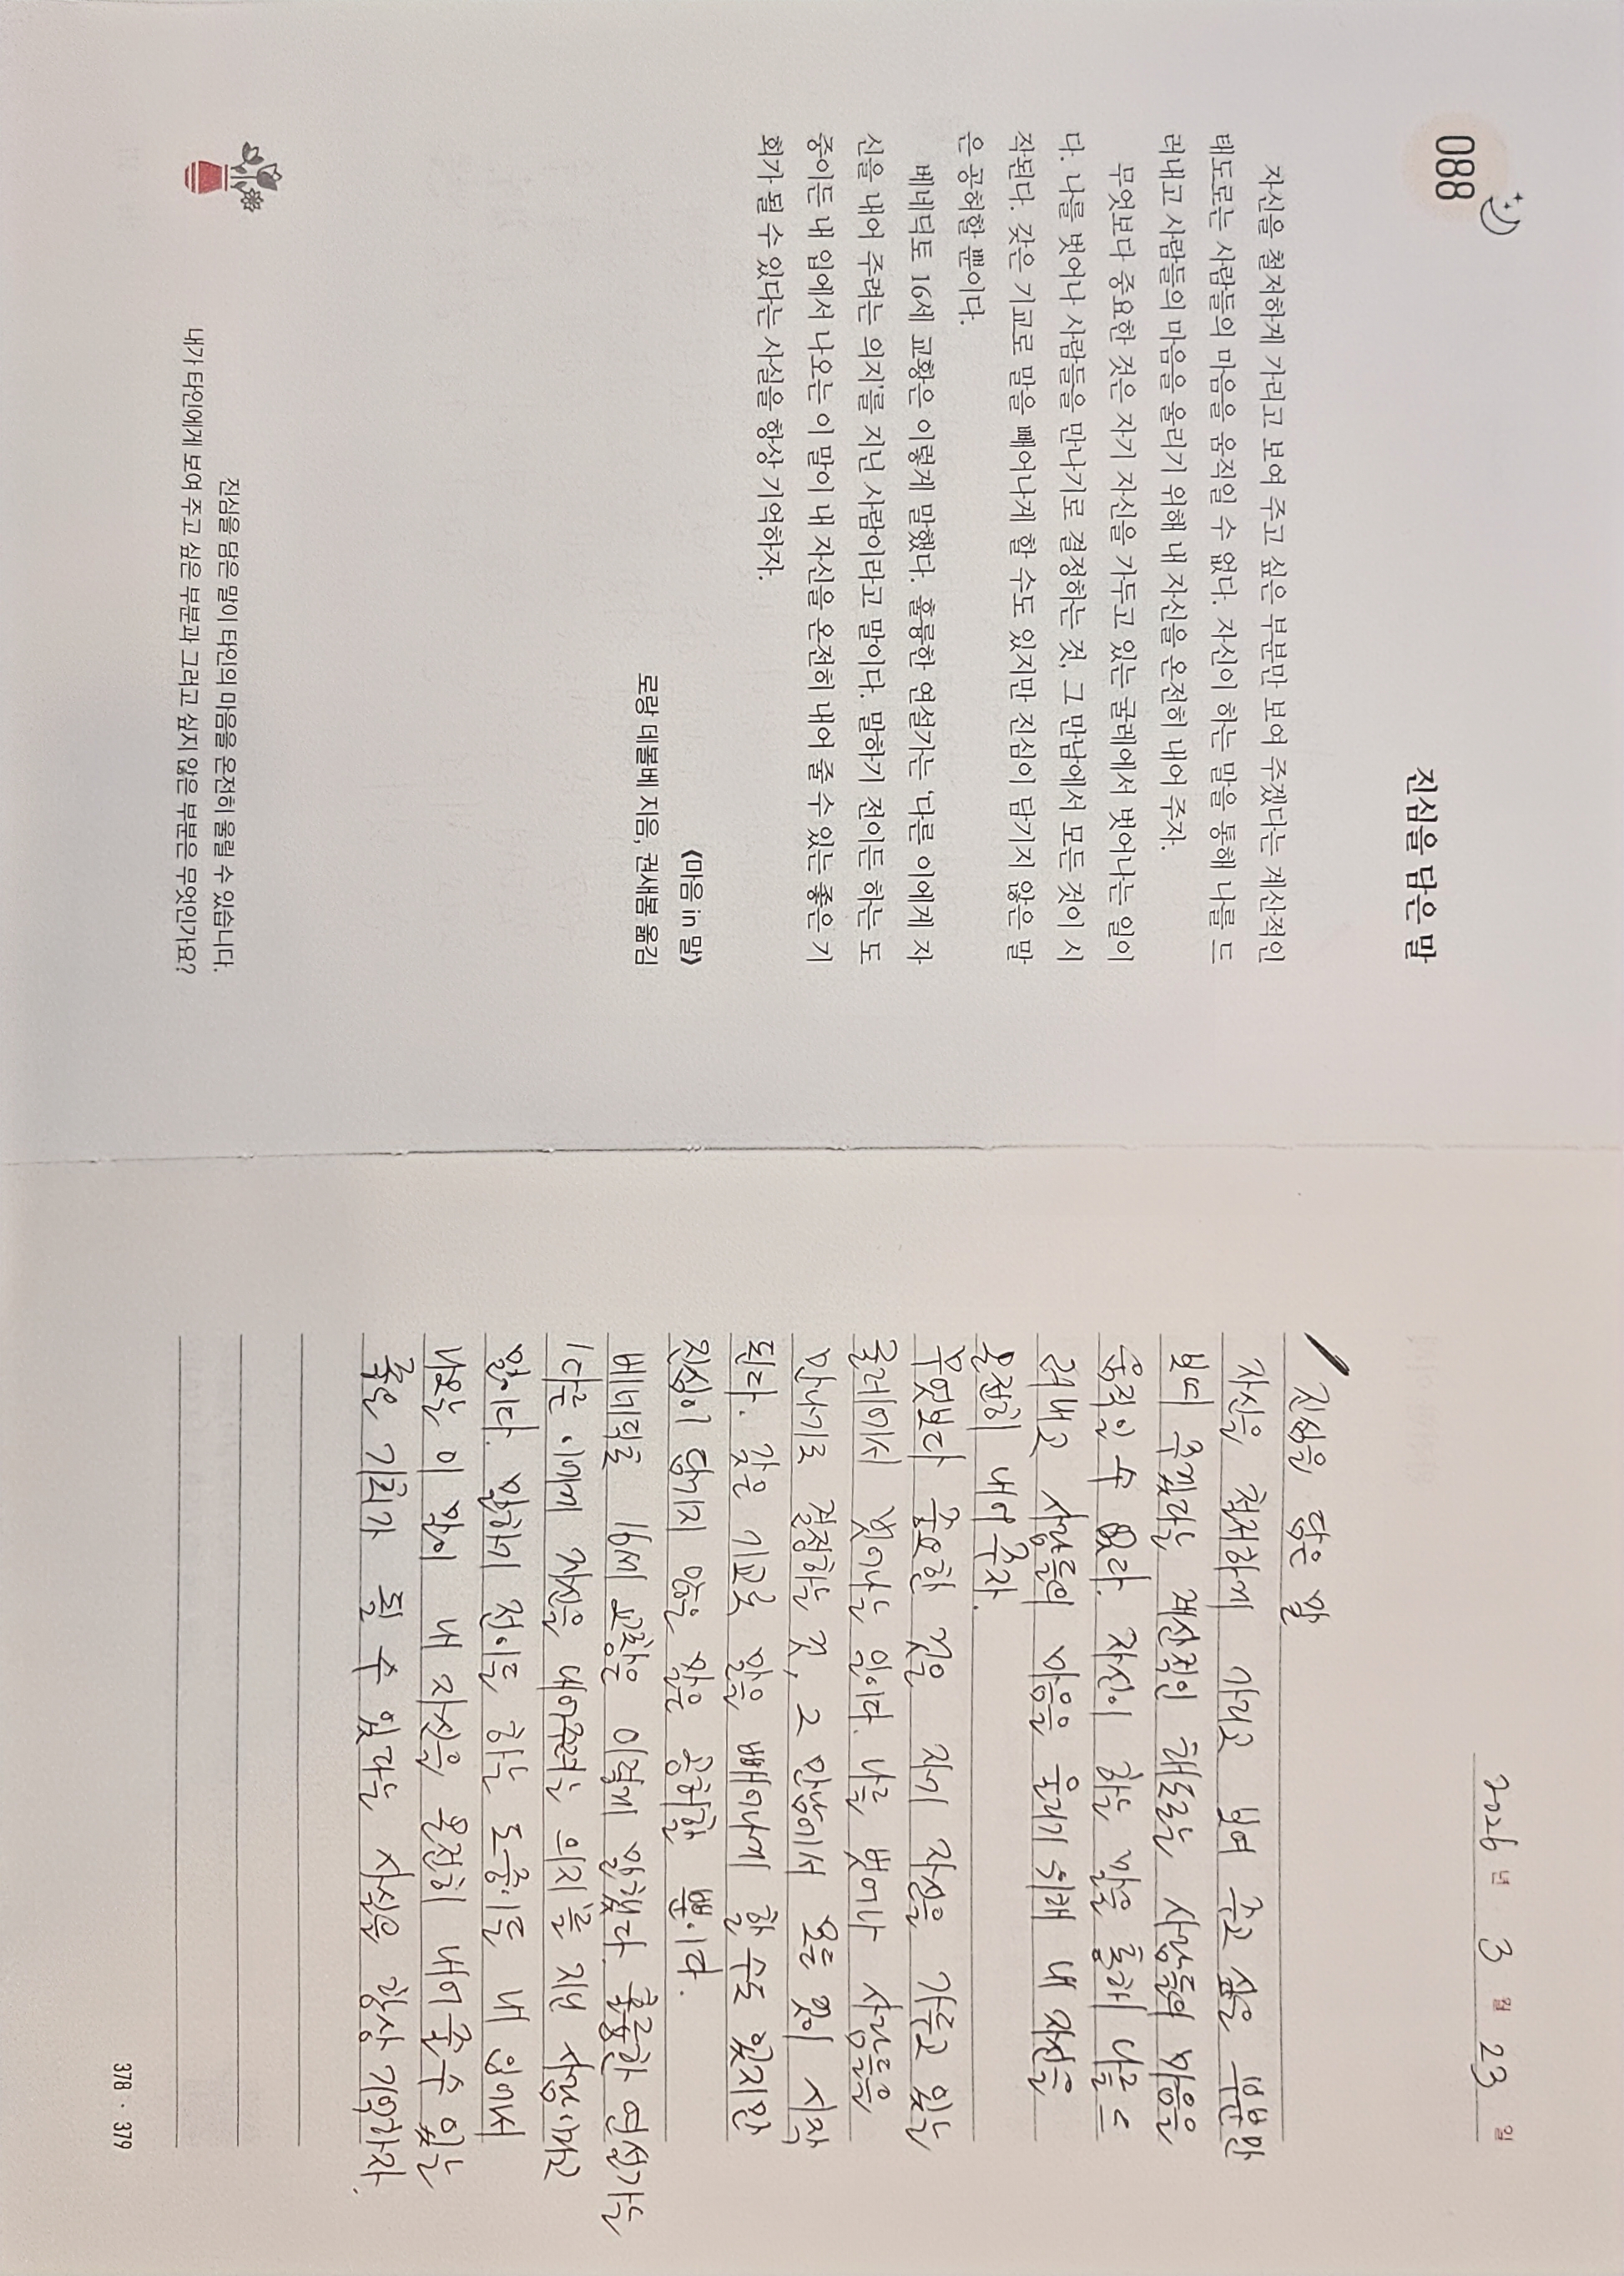 088
진심을 담은 말
자신을 철저하게 가리고 보여 주고 싶은 부분만 보여 주겠다는 계산적인
태도로는 사람들의 마음을 움직일 수 없다. 자신이 하는 말을 통해 나를 드
러내고 사람들의 마음을 울리기 위해 내 자신을 온전히 내어 주자.
무엇보다 중요한 것은 자기 자신을 가두고 있는 굴레에서 벗어나는 일이
다. 나를 벗어나 사람들을 만나기로 결정하는 것, 그 만남에서 모든 것이 시
작된다. 갖은 기교로 말을 빼어나게 할 수도 있지만 진심이 담기지 않은 말
은 공허할 뿐이다.
베네딕토 16세 교황은 이렇게 말했다. 훌륭한 연설가는 '다른 이에게 자
신을 내어 주려는 의지'를 지닌 사람이라고 말이다. 말하기 전이든 하는 도
중이든 내 입에서 나오는 이 말이 내 자신을 온전히 내어 줄 수 있는 좋은 기
회가 될 수 있다는 사실을 항상 기억하자.
《마음 in 말》
로랑 데볼베 지음, 권새봄 옮김
진심을 담은 말이 타인의 마음을 온전히 울릴 수 있습니다.
내가 타인에게 보여 주고 싶은 부분과 그러고 싶지 않은 부분은 무엇인가요?
2026년 3월 23일
진심을 담은 말
자신을 철저하게 가리고 보여 주고 싶은 부분만
보여 주겠다는 계산적인 태도로는 사람들의 마음을
움직일 수 없다. 자신이 하는 말을 통해 나를 드
러내고 사람들의 마음을 울리기 위해 내 자신을
온전히 내어 주자.
무엇보다 중요한 것은 자기 자신을 가두고 있는
굴레에서 벗어나는 일이다. 나를 벗어나 사람들을
만나기로 결정하는 것, 그 만남에서 모든 것이 시작
된다. 갖은 기교로 말을 빼어나게 할 수도 있지만
진심이 담기지 않은 말은 공허할 뿐이다.
베네딕토 16세 교황은 이렇게 말했다. 훌륭한 연설가는
'다른 이에게 자신을 내어주려는 의지'를 지닌 사람이라고
말이다. 말하기 전이든 하는 도중이든 내 입에서
나오는 이 말이 내 자신을 온전히 내어 줄 수 있는
좋은 기회가 될 수 있다는 사실을 항상 기억하자.
378 · 379